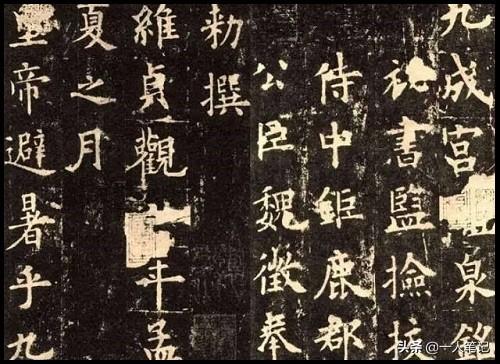 九成宮泉銘
秘書監撿挍
侍中鉅鹿郡
公臣魏徵奉
勑撰
維貞觀年孟
夏之月
皇帝避暑乎九
头条 @一人笔记